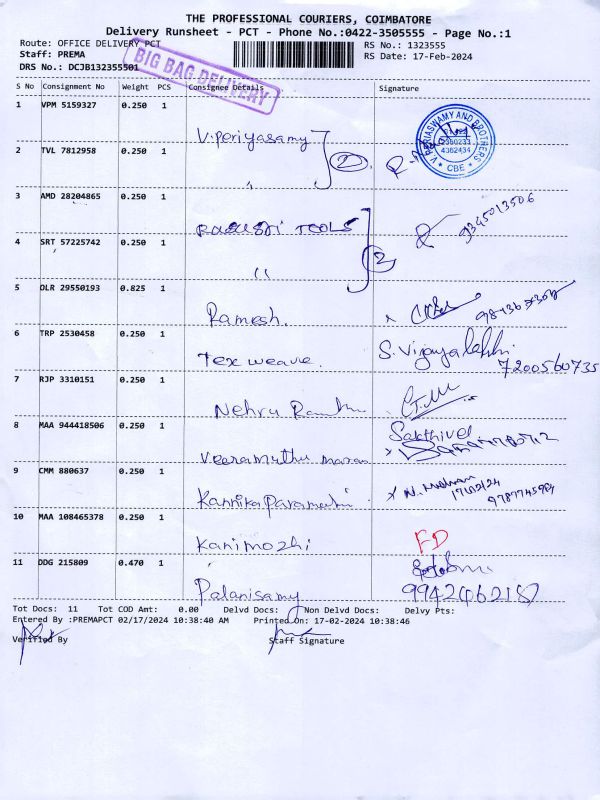 THE PROFESSIONAL COURIERS, COIMBATORE
Delivery Runsheet - PCT - Phone No.:0422-3505555 - Page No.:1
Route: OFFICE DELIVERY PCT RS No.: 1323555
Staff: PREMA RS Date: 17-Feb-2024
DRS No.: DCJB132355501
BIG BAG DELIVERY
S No Consignment No Weight PCS Consignee Details Signature
1 VPM 5159327 0.250 1 V.periyasamy
V. PERIASWAMY AND BROTHERS
4362434
CBE
2 TVL 7812958 0.250 1 " 2
3 AMD 28204865 0.250 1 TOOLS 9345013506
4 SRT 57225742 0.250 1 " 2
5 DLR 29550193 0.825 1 Ramesh.
6 TRP 2530458 0.250 1 Tex weave. S. Vijayalakhi
7200560735
7 RJP 3310151 0.250 1 Nehru
8 MAA 944418506 0.250 1 Veeramuthu Sakthivel
9 CMM 880637 0.250 1 N. Mohan
17/02/24
9787745984
10 MAA 108465378 0.250 1 Kanimozhi FD
11 DDG 215809 0.470 1 Palanisamy
Tot Docs: 11 Tot COD Amt: 0.00 Delvd Docs: Non Delvd Docs: Delvy Pts:
Entered By :PREMAPCT 02/17/2024 10:38:40 AM Printed On: 17-02-2024 10:38:46
Verified By Staff Signature